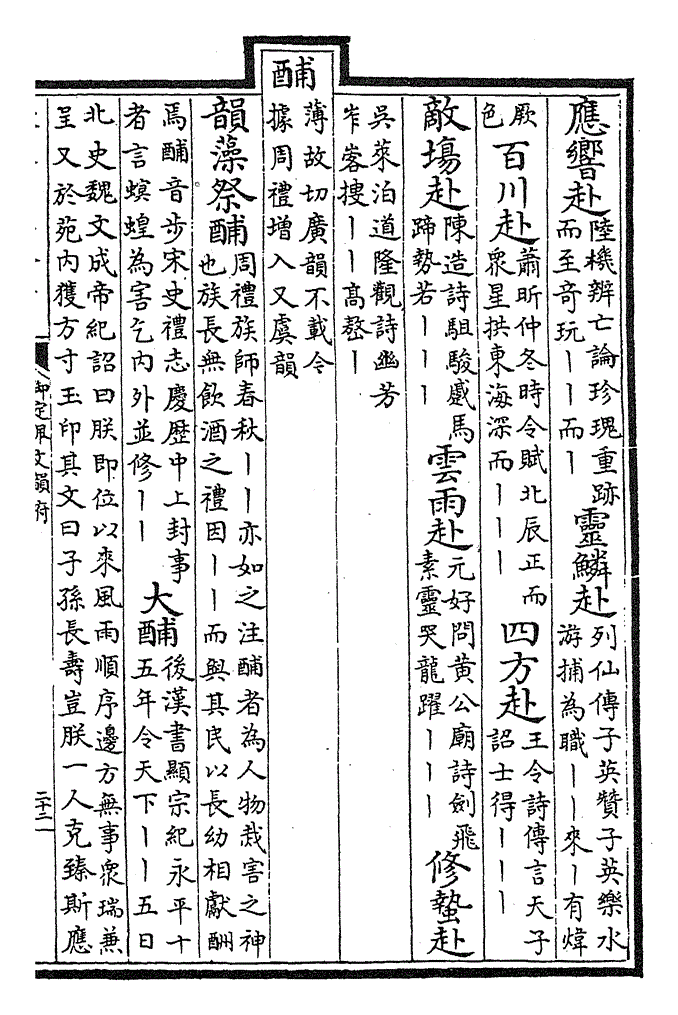 應響赴陸機辨亡論珍瑰重跡而至奇玩丨丨而丨靈鱗赴列仙傳子英贊子英樂水游捕為職丨丨來丨有煒
厥色百川赴蕭昕仲冬時令賦北辰正而衆星拱東海深而丨丨丨四方赴王令詩傳言天子詔士得丨丨丨
敵塲赴陳造詩駔駿蹙馬蹄勢若丨丨丨雲雨赴元好問黃公廟詩劍飛素靈哭龍躍丨丨丨修蟄赴
吳萊泊道隆觀詩幽芳岞峉捜丨丨高嶅丨
酺薄故切廣韻不載今據周禮増入又虞韻
韻藻祭酺周禮族師春秋丨丨亦如之注酺者為人物烖害之神也族長無飲酒之禮因丨丨而與其民以長幼相獻酬
焉酺音步宋史禮志慶歴中上封事者言螟蝗為害乞内外並修丨丨大酺後漢書顯宗紀永平十五年令天下丨丨五日
北史魏文成帝紀詔曰朕即位以來風雨順序邊方無事衆瑞兼呈又於苑内獲方寸玉印其文曰子孫長壽豈朕一人克臻斯應
御定佩文韻府